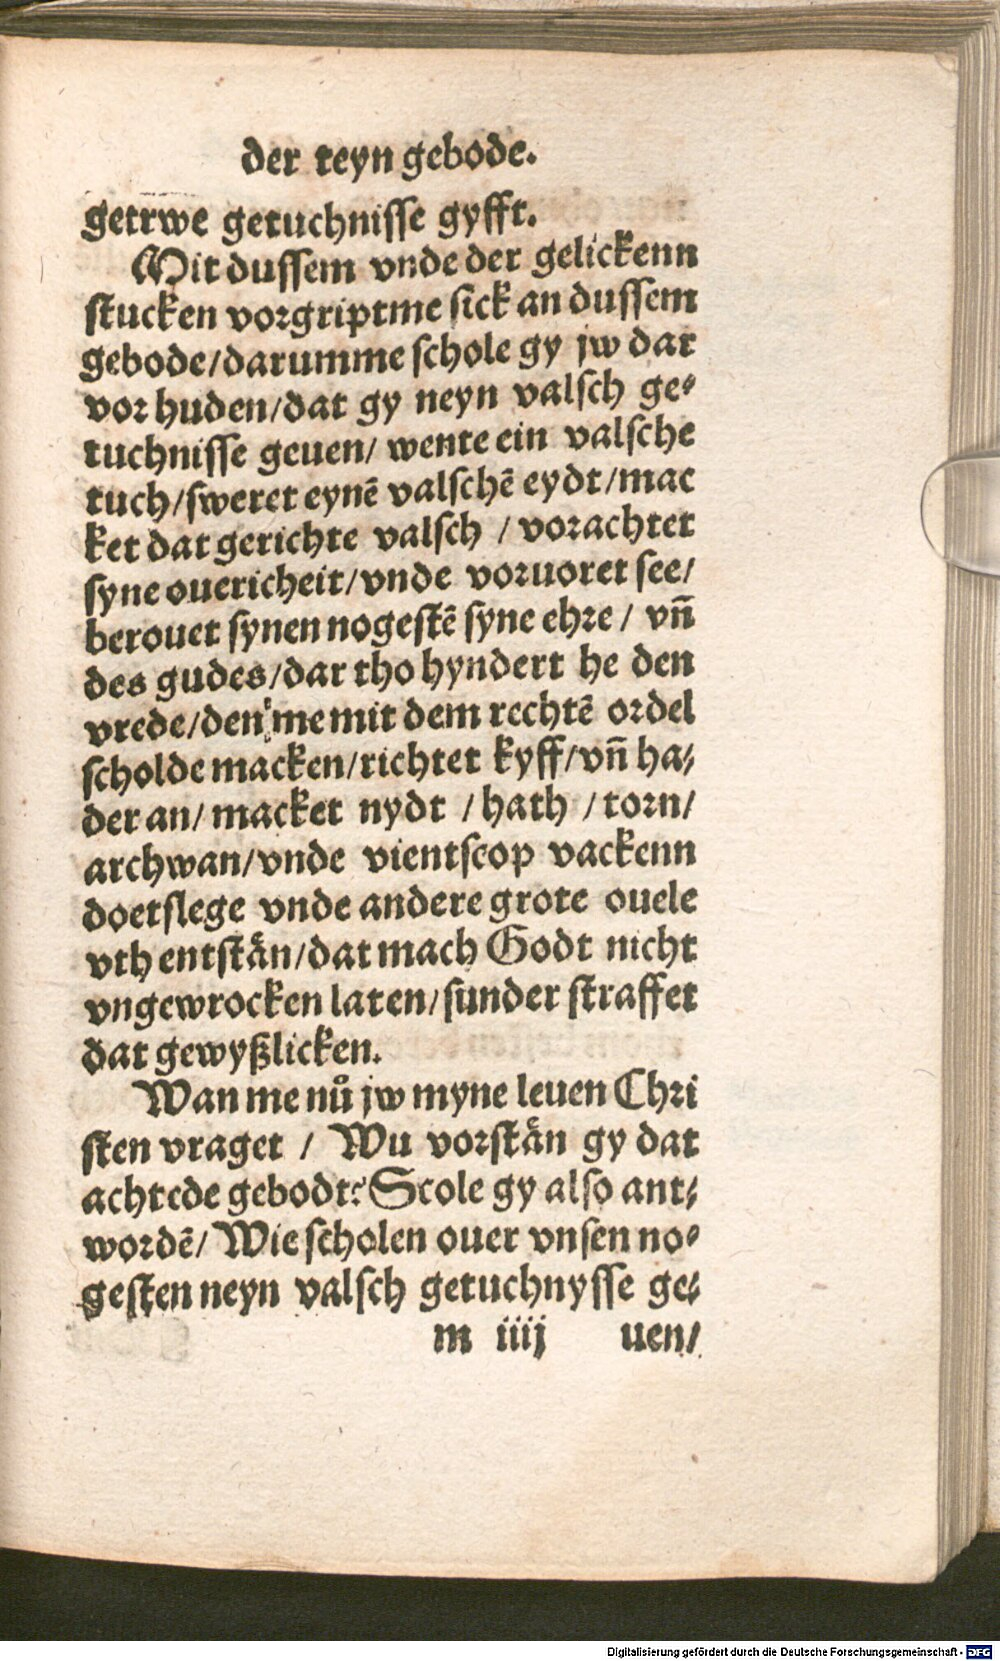 der teyn gebode.
getrwe getuchnisse gyfft.
Mit dussem vnde der gelickenn
stucken vorgriptme sick an dussem
gebode/darumme schole gy jw dar
vor huden/dat gy neyn valsch ge-
tuchnisse geuen/ wente ein valsche
tuch/sweret eynē valschē eydt/mac
ket dat gerichte valsch / vorachtet
syne ouericheit/vnde voruoret see/
berouet synen nogestē syne ehre / vn̄
des gudes/dar tho hyndert he den
vrede/den me mit dem rechtē ordel
scholde macken/richtet kyff/vn̄ ha-
der an/ macket nydt / hath / torn/
archwan/vnde vientscop vackenn
doetslege vnde andere grote ouele
vth entstän/dat mach Godt nicht
vngewrocken laten/sunder straffet
dat gewyßlicken.
Wan me nů jw myne leuen Chri
sten vraget / Wu vorstän gy dat
achtede gebodt? Scole gy also ant-
wordē/ Wie scholen ouer vnsen no-
gesten neyn valsch getuchnysse ge-
m iiij uen/
Digitalisierung gefördert durch die Deutsche Forschungsgemeinschaft - DFG